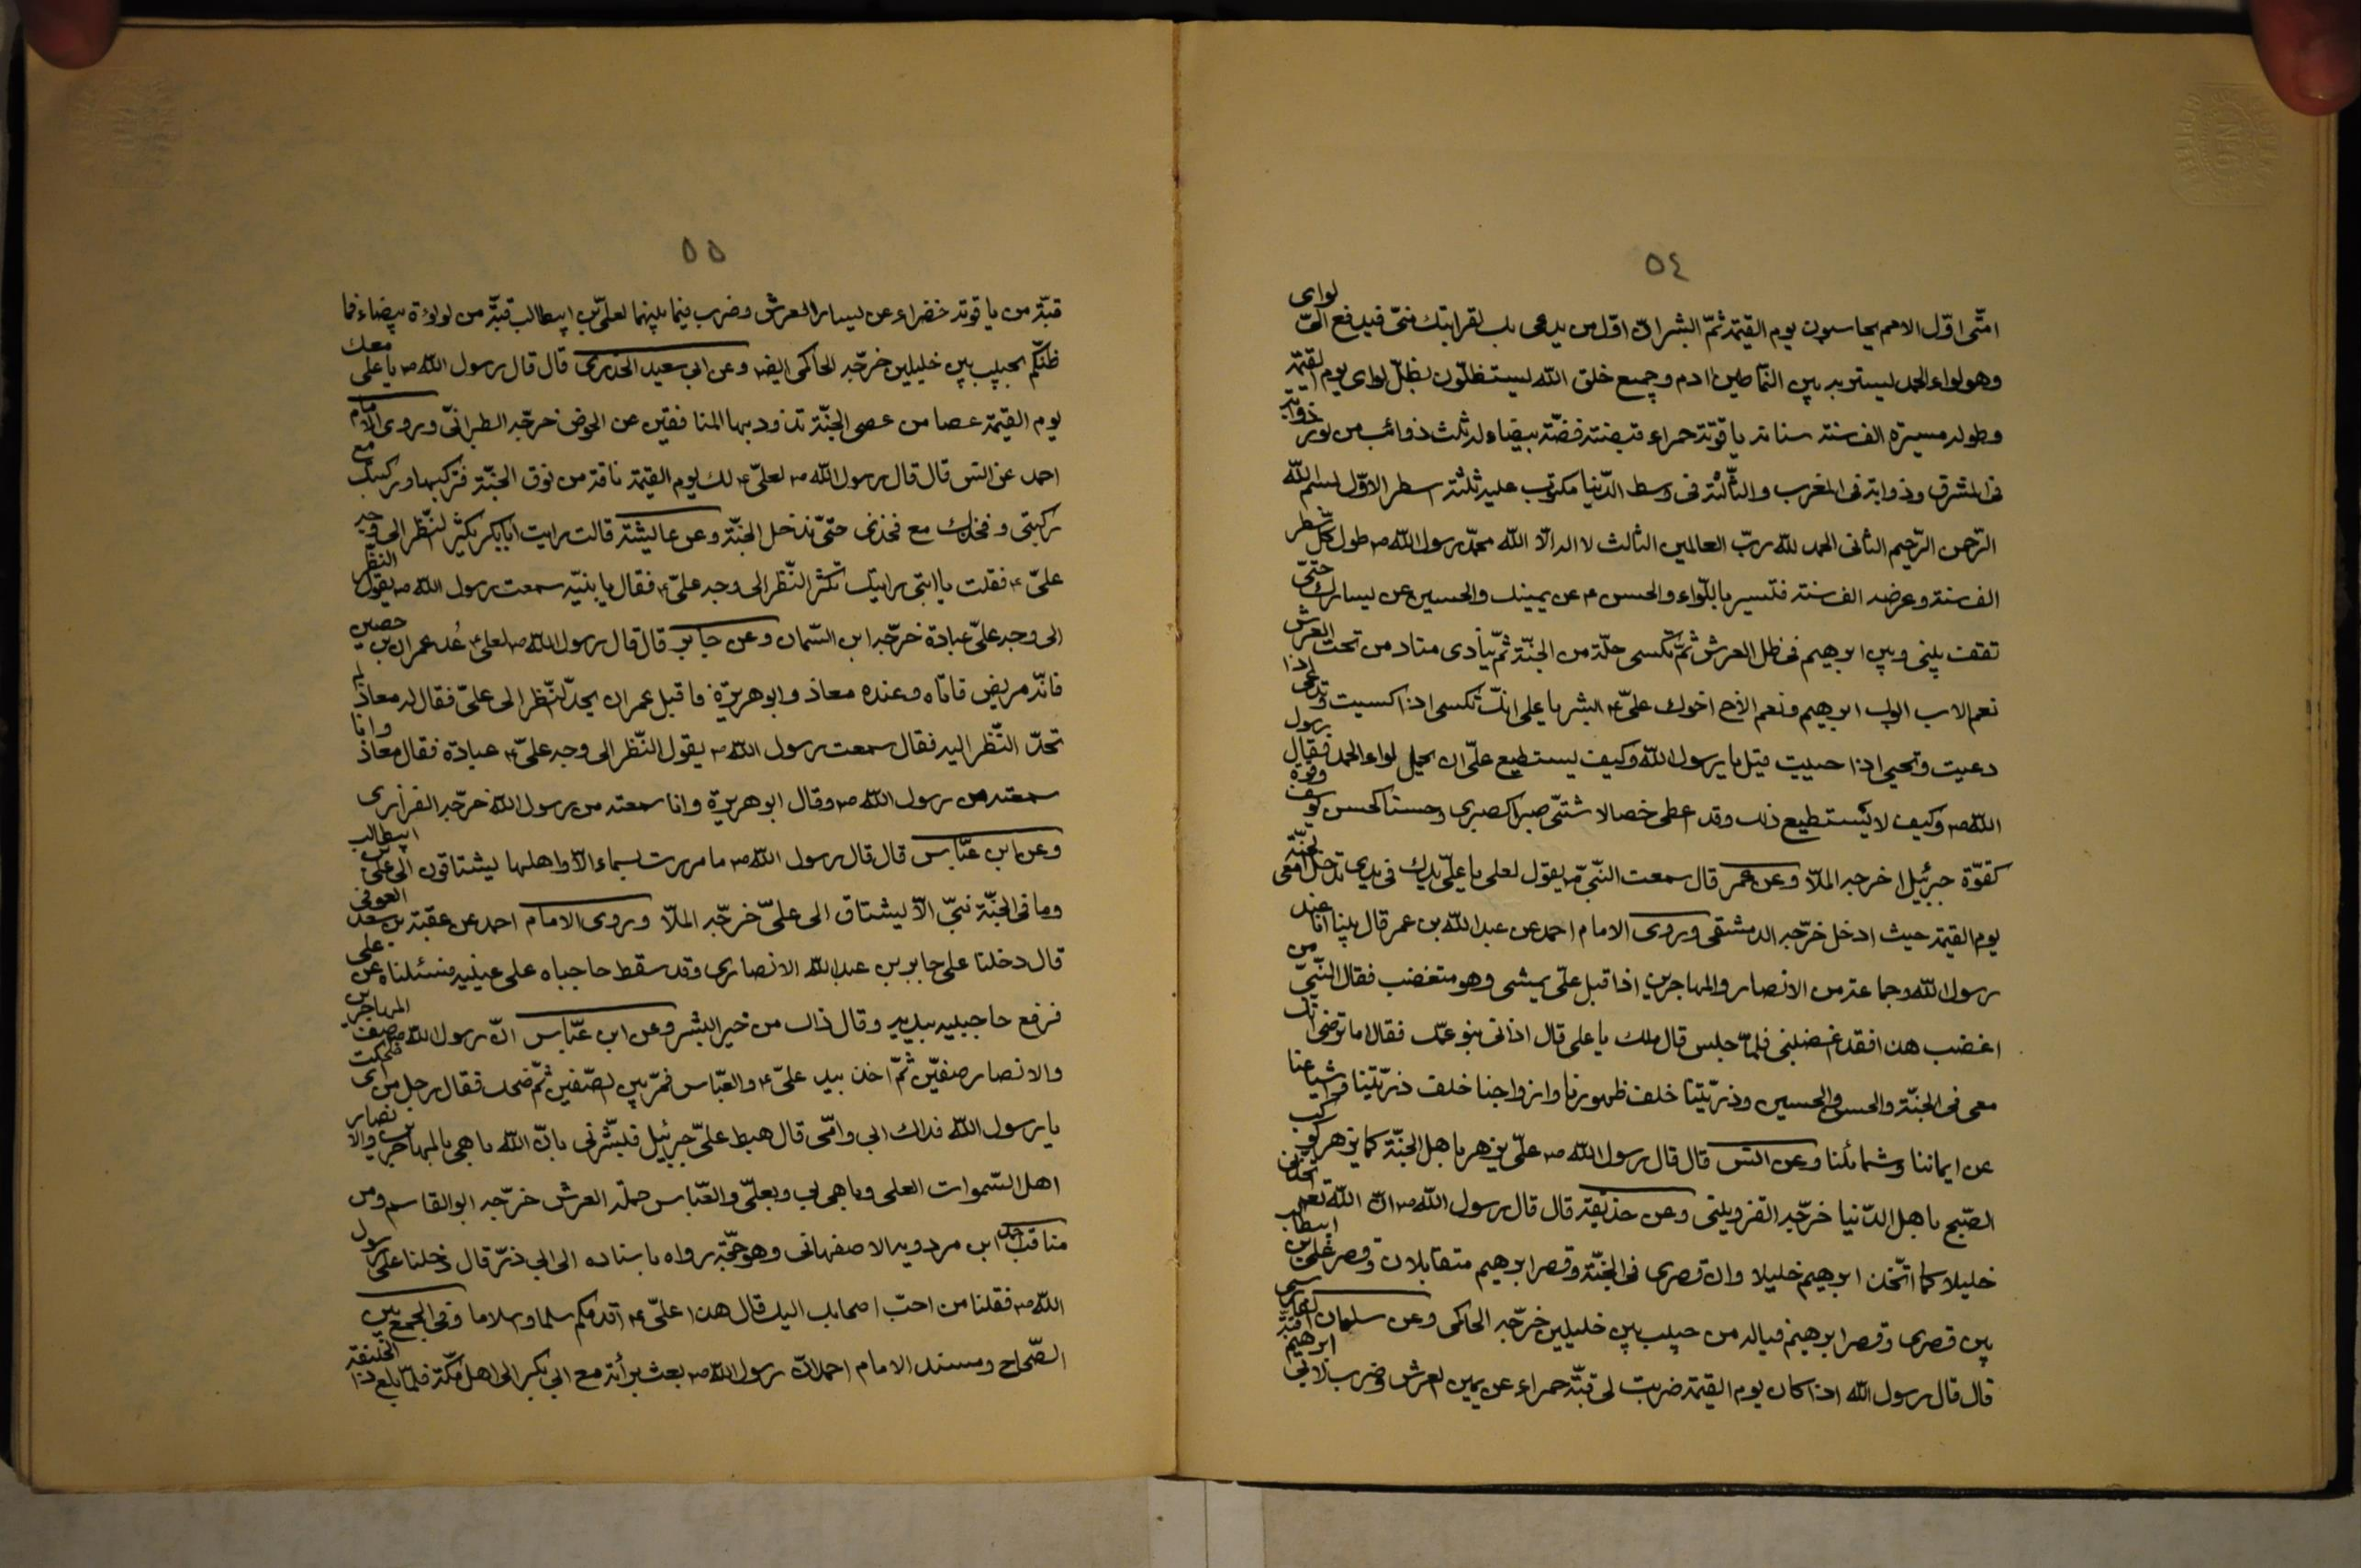 ٥٤
امتى اوّل الامم يحاسبون يوم القيمة ثمّ ابشر انّ اوّل من يدعى بك لقرابتك منّى فيدفع اليك لوائى
وهو لواء الحمد يستر به بين السّماطين ادم وجميع خلق الله يستظلّون بظلّ لوائى يوم القيمة
وطوله مسيرة الف سنة سنانه ياقوتة حمراء قبضته فضّة بيضاء له ثلث ذوائب من نور ذوابة
فى المشرق وذوابة فى المغرب والثّالثة فى وسط الدّنيا مكتوب عليه ثلثة اسطر الاوّل بسم الله
الرّحمن الرّحيم الثانى الحمد لله ربّ العالمين الثالث لا اله الّا الله محمّد رسول الله ص طول كلّ سطر
الف سنة وعرضه الف سنة فتسير باللّواء والحسن ع عن يمينك والحسين عن يسارك حتّى
تقف بينى وبين ابرهيم فى ظل العرش ثمّ تكسى حلّة من الجنّة ثمّ ينادى مناد من تحت العرش
نعم الاب ابوك ابرهيم ونعم الاخ اخوك علىّ ع ابشر يا على انّك تكسى اذا كسيت وتدعى اذا
دعيت وتحيى اذا حييت قيل يا رسول الله وكيف يستطيع علىّ ان يحمل لواء الحمد فقال رسول
الله ص وكيف لا يستطيع ذلك وقد اعطى خصالا شتّى صبرا كصبرى وحسنا كحسن يوسف وقوة
كقوّة جبرئيل اخرجه الملّا وعن عمر قال سمعت النّبىّ ص يقول لعلى يا علىّ يدك فى يدى تدخل معى الجنّة
يوم القيمة حيث ادخل خرّجه الدمشقى وروى الامام احمد عن عبد الله بن عمر قال بينا انا عند
رسول الله وجماعة من الانصار والمهاجرين اذا قبل علىّ يمشى وهو متغضب فقال النّبىّ من
اغضب هذا فقد اغضبنى فلمّا جلس قال مالك يا على قال اذانى بنو عمّك فقال اما ترضى انّك
معى فى الجنّة والحسن والحسين وذرّيّتنا خلف ظهورنا وازواجنا خلف ذرّيّتنا واشياعنا
عن ايماننا وشمائلنا وعن انس قال قال رسول الله ص علىّ يزهر باهل الجنّة كما يزهر كوكب
الصّبح باهل الدّنيا خرّجه القزوينى وعن حذيفة قال قال رسول الله ص انّ الله تعم اتّخذنى
خليلا كما اتّخذ ابرهيم خليلا وان قصرى فى الجنّة وقصر ابرهيم متقابلان وقصر علىّ بن ابيطالب
بين قصرى وقصر ابرهيم فياله من حبيب بين خليلين خرّجه الحاكمى وعن سلمان
قال قال رسول الله اذا كان يوم القيمة ضربت لى قبّة حمراء عن يمين العرش وضرب لابى ابرهيم
٥٥
قبّة من ياقوتة خضراء عن يسار العرش وضرب فيما بينهما لعلىّ بن ابيطالب قبّة من لولؤة بيضاء فما
ظنّكم بحبيب بين خليلين خرّجه الحاكمى ايضا وعن ابى سعيد الخدرى قال قال رسول الله ص يا على معك
يوم القيمة عصا من عصى الجنّة تذود بها المنافقين عن الحوض خرّجه الطبرانىّ وروى الامام
احمد عن انس قال قال رسول الله ص لعلىّ ع لك يوم القيمة ناقة من نوق الجنّة فتركبها وركبتك مع
ركبتى وفخذك مع فخذى حتّى تدخل الجنّة وعن عايشة قالت رايت ابابكر يكثر النّظر الى وجه
علىّ ع فقلت يا ابتى رايتك تكثر النّظر الى وجه علىّ ع فقال يا بنيّه سمعت رسول الله ص يقول النّظر
الى وجه علىّ عبادة خرّجه ابن السّمان وعن جابر قال قال رسول الله ص لعلىّ ع عُد عمران بن حصين
فانّه مريض فاتاه وعنده معاذ وابو هريرة فاقبل عمران يحدّ النّظر الى علىّ فقال له معاذ لم
تحدّ النّظر اليه فقال سمعت رسول الله ص يقول النّظر الى وجه علىّ ع عبادة فقال معاذ وانا
سمعته من رسول الله ص وقال ابو هريرة وانا سمعته من رسول الله خرّجه الفزارى
وعن ابن عبّاس قال قال رسول الله ص ما مررت بسماء الّا واهلها يشتاقون الى علىّ بن ابيطالب
وما فى الجنّة نبىّ الّا يشتاق الى علىّ خرّجه الملّا وروى الامام احمد عن عقبة بن سعد العوفى
قال دخلنا على جابر بن عبد الله الانصارى وقد سقط حاجباه على عينيه فسئلناه عن على
فرفع حاجبيه بيديه وقال ذاك من خير البشر وعن ابن عبّاس انّ رسول الله ص صف المهاجرين
والانصار صفيّن ثمّ اخذ بيد علىّ ع والعبّاس فمرّ بين الصّفين ثمّ ضحك فقال رجل من اى ضحكت
يا رسول الله فداك ابى وامّى قال هبط علىّ جبرئيل فبشّرنى بانّ الله باهى بالمهاجرين والانصار
اهل السّموات العلى وباهى بى وبعلىّ والعبّاس حملة العرش خرّجه ابو القاسم ومن
مناقب احمد ابن مردويه الاصفهانى وهو حجّة رواه باسناده الى ابى ذرّ قال دخلنا على رسول
الله ص فقلنا من احبّ اصحابك اليك قال هذا علىّ ع اقدمكم سلما واسلاما وفى الجمع بين
الصّحاح ومسند الامام احمد انّ رسول الله ص بعث برأئة مع ابى بكر الى اهل مكّة فلمّا بلغ ذا الحليفة